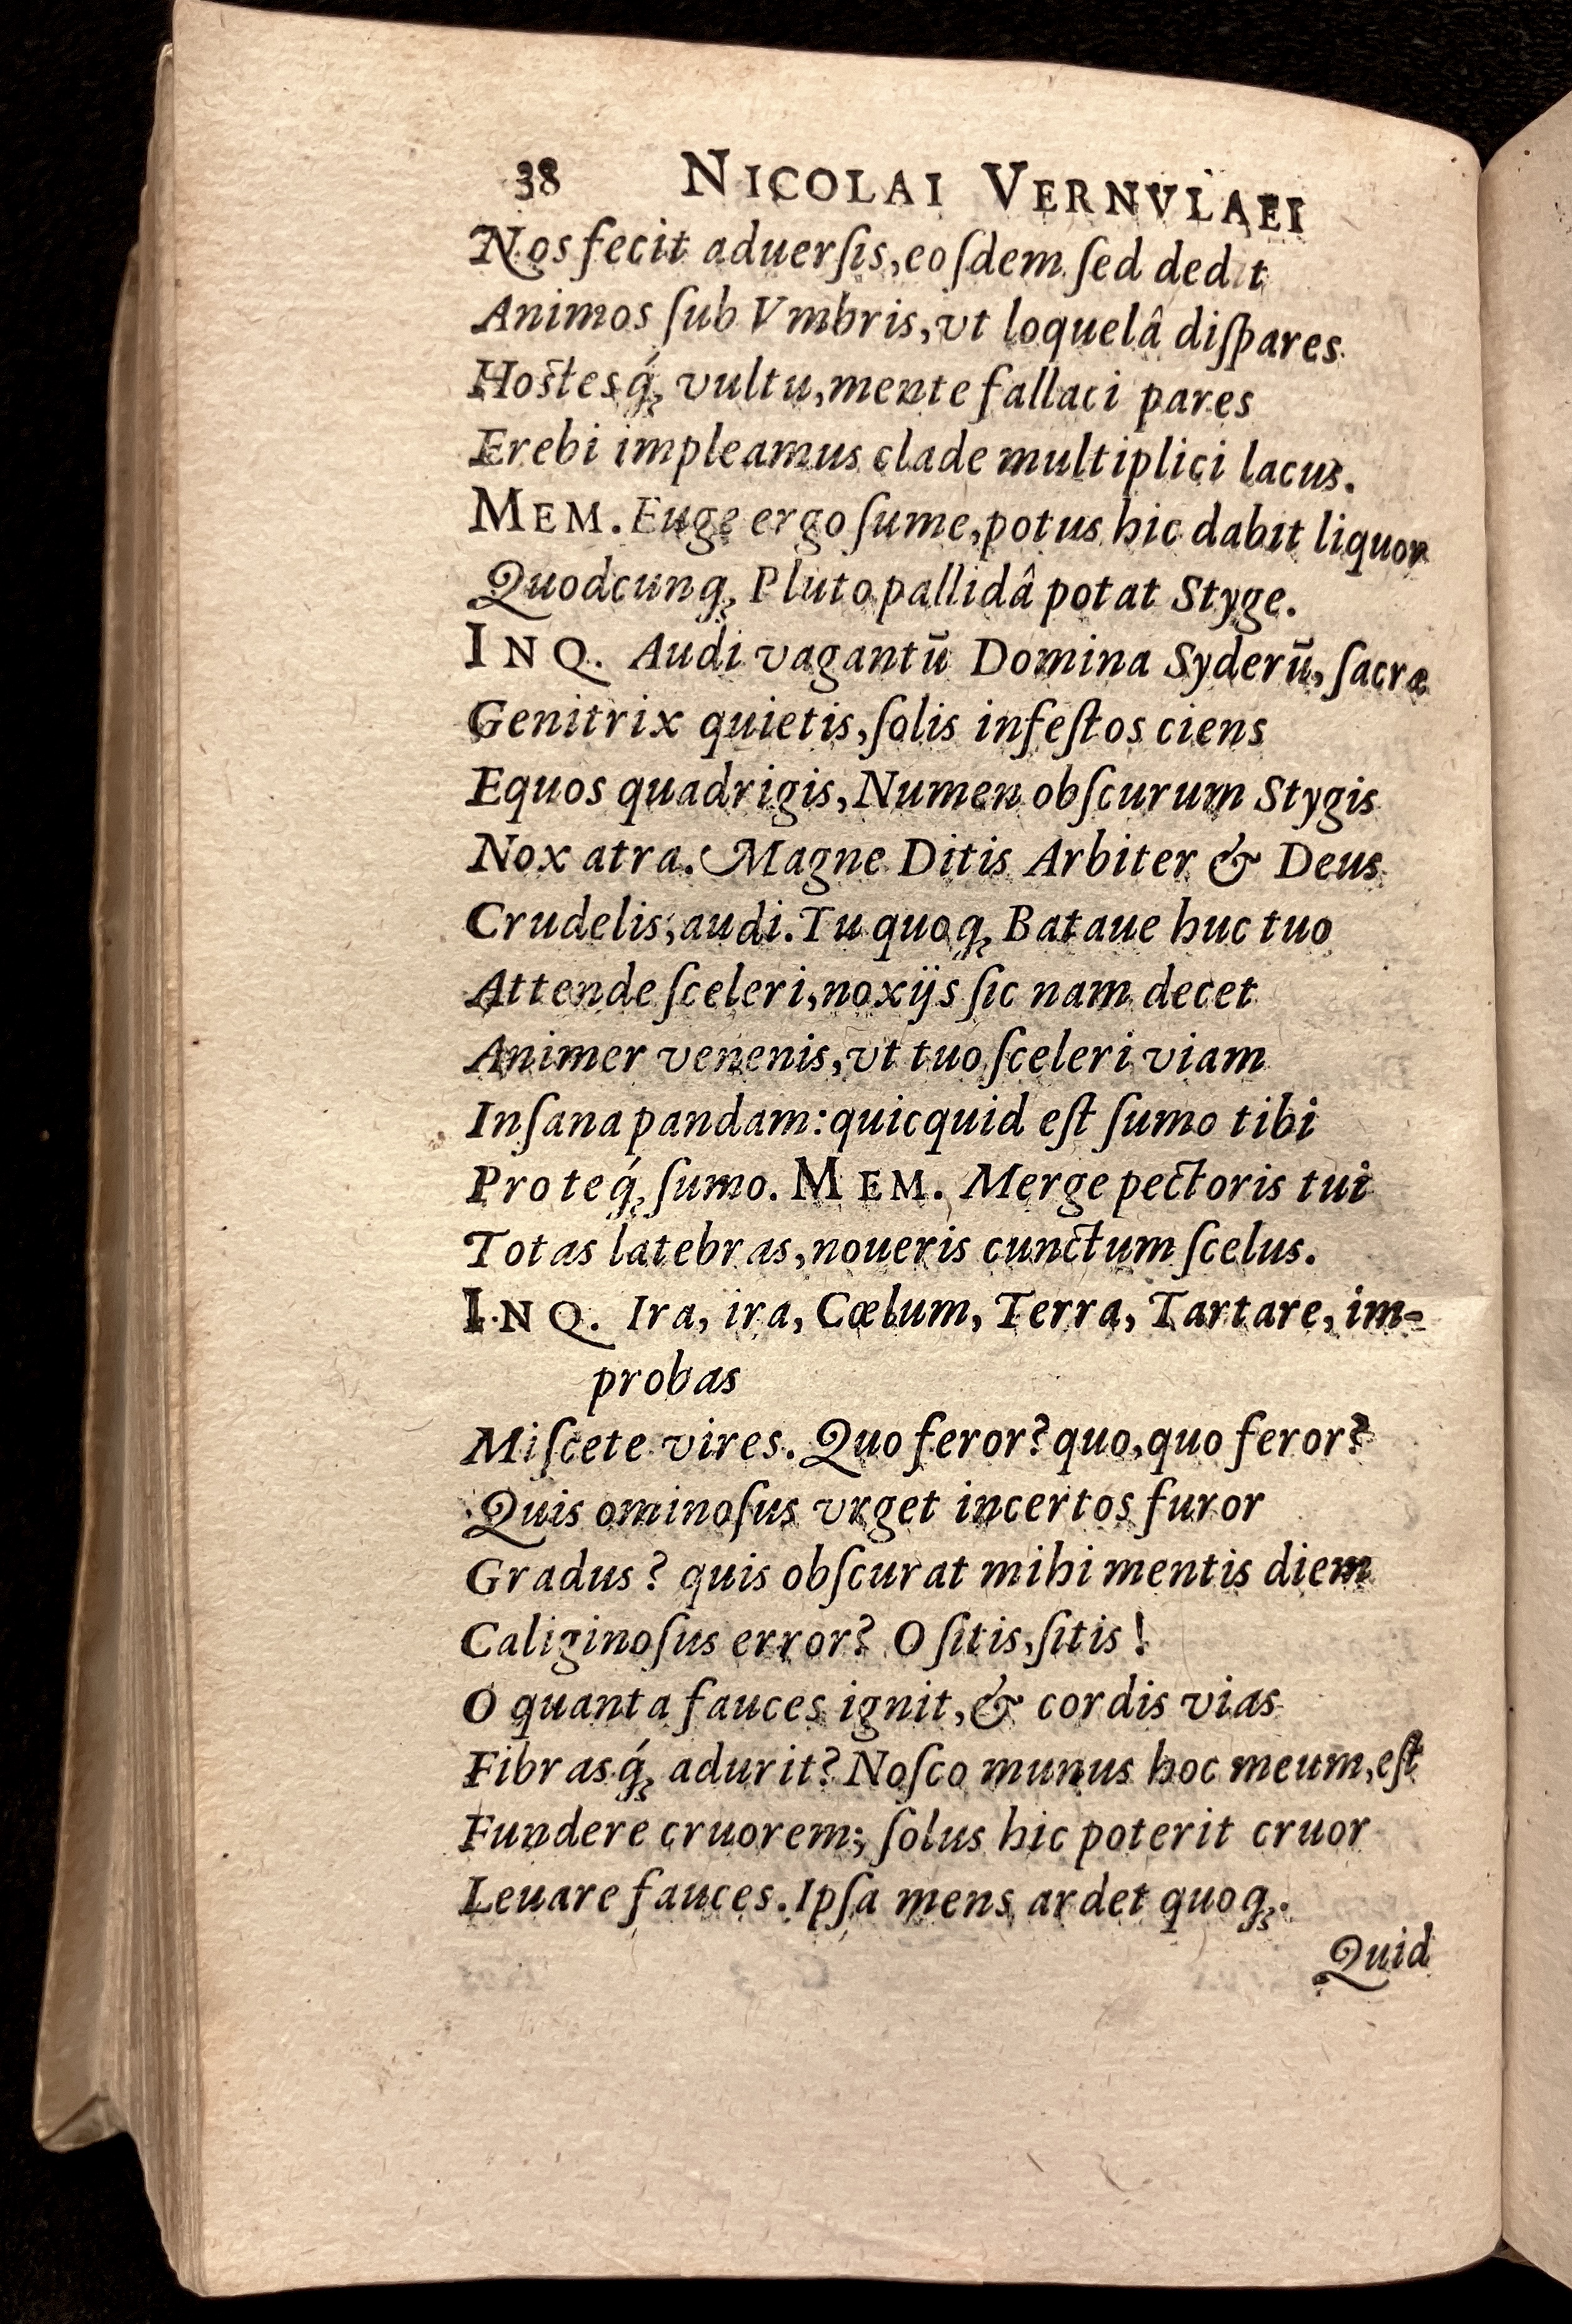 38 NICOLAI VERNVLAEI
Nos fecit aduerſis, eoſdem ſed dedit
Animos ſub Vmbris, vt loquelâ diſpares
Hoſtesq́ꝫ vultu, mente fallaci pares
Erebi impleamus clade multiplici lacus.
MEM. Euge ergo ſume, potus hic dabit liquor
Quodcunqꝫ Pluto pallidâ potat Styge.
INQ. Audi vagantū Domina Syderū, ſacræ
Genitrix quietis, ſolis infeſtos ciens
Equos quadrigis, Numen obſcurum Stygis
Nox atra. Magne Ditis Arbiter & Deus
Crudelis, audi. Tu quoqꝫ Bataue huc tuo
Attende ſceleri, noxijs ſic nam decet
Animer venenis, vt tuo ſceleri viam
Inſana pandam: quicquid eſt ſumo tibi
Pro teq́ꝫ ſumo. MEM. Merge pectoris tui
Totas latebras, noueris cunctum ſcelus.
INQ. Ira, ira, Cœlum, Terra, Tartare, im-
probas
Miſcete vires. Quo feror? quo, quo feror?
Quis ominoſus vrget incertos furor
Gradus? quis obſcurat mihi mentis diem
Caliginoſus error? O ſitis, ſitis!
O quanta fauces ignit, & cordis vias
Fibrasq́ꝫ adurit? Noſco munus hoc meum, eſt
Fundere cruorem; ſolus hic poterit cruor
Leuare fauces. Ipſa mens ardet quoqꝫ.
Quid